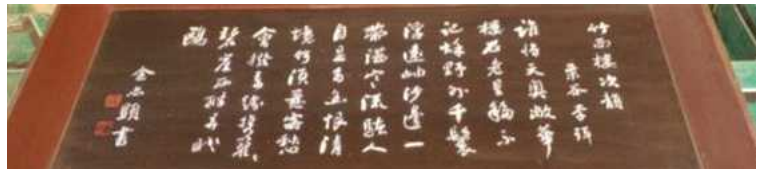 竹西樓次韻
栗谷 李珥
誰將天奧敞華
樓石老星移不
記秋野外千鬟
浮遠岫沙邊一
帶湛寒流騷人
自是多幽恨清
境何須惹客愁
會撥萬緣携籊籊
碧崖西畔弄眠
鷗
金 顯書